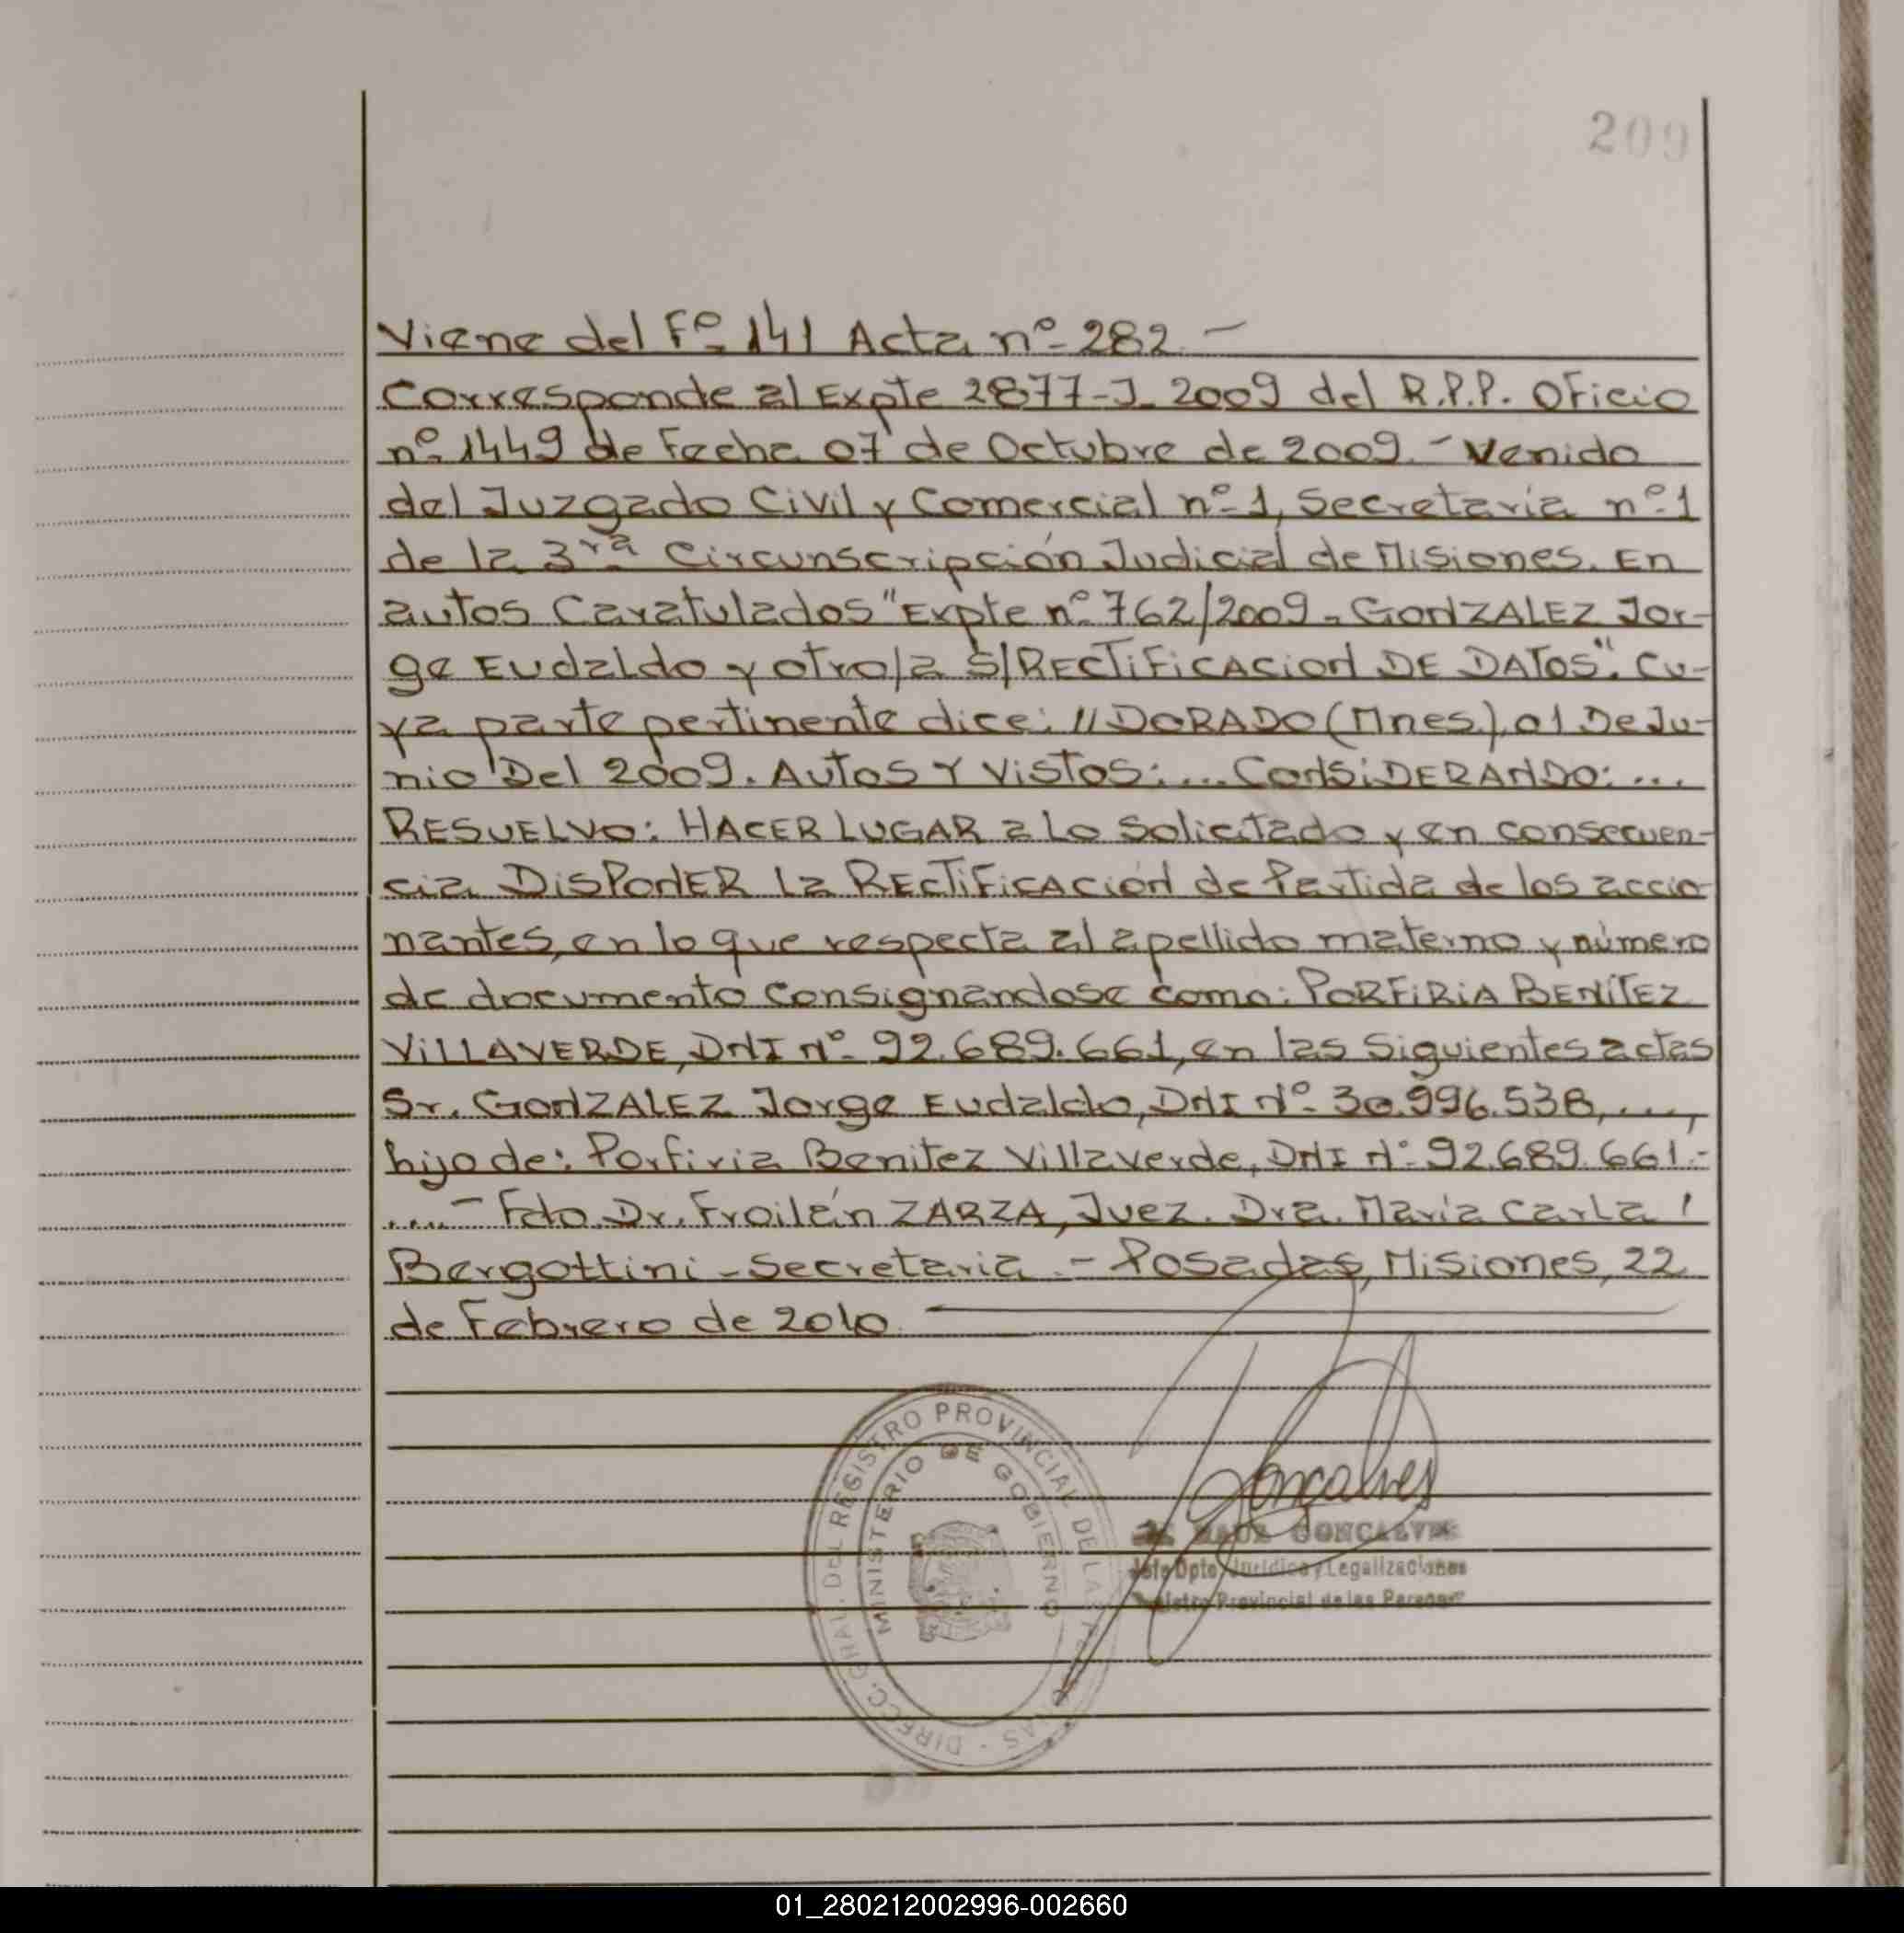 209
Viene del Fº 141 Acta nº 282 -
Corresponde al Expte 2877-J-2009 del R.P.P. Oficio
nº 1449 de Fecha 07 de Octubre de 2009.- Venido
del Juzgado Civil y Comercial nº 1, Secretaría nº 1
de la 3ra Circunscripción Judicial de Misiones. En
autos Caratulados "Expte nº 762/2009 - GONZALEZ Jor-
ge Eudaldo y otro/a S/RECTIFICACION DE DATOS". Cu-
ya parte pertinente dice: //DORADO (Mnes.), 01 De Ju-
nio Del 2009. AUTOS Y VISTOS: ... CONSIDERANDO: ...
RESUELVO: HACER LUGAR a Lo Solicitado y en consecuen-
cia DISPONER La RECTIFICACIÓN de Partida de los accio-
nantes, en lo que respecta al apellido materno y número
de documento Consignándose como: PORFIRIA BENÍTEZ
VILLAVERDE, DNI Nº 92.689.661, en las Siguientes actas
Sr. GONZALEZ Jorge Eudaldo, DNI Nº 30.996.538, ....,
hijo de: Porfiria Benitez Villaverde, DNI Nº 92.689.661.-
....- Fdo. Dr. Froilán ZARZA, Juez. Dra. María Carla
Bergottini - Secretaria.- Posadas, Misiones, 22
de Febrero de 2010
DIRECC. GRAL. DEL REGISTRO PROVINCIAL DE LAS PERSONAS
MINISTERIO DE GOBIERNO
Gonçalves
GONCALVES
Jefe Dpto. Jurídico y Legalizaciones
Registro Provincial de las Personas
01_280212002996-002660